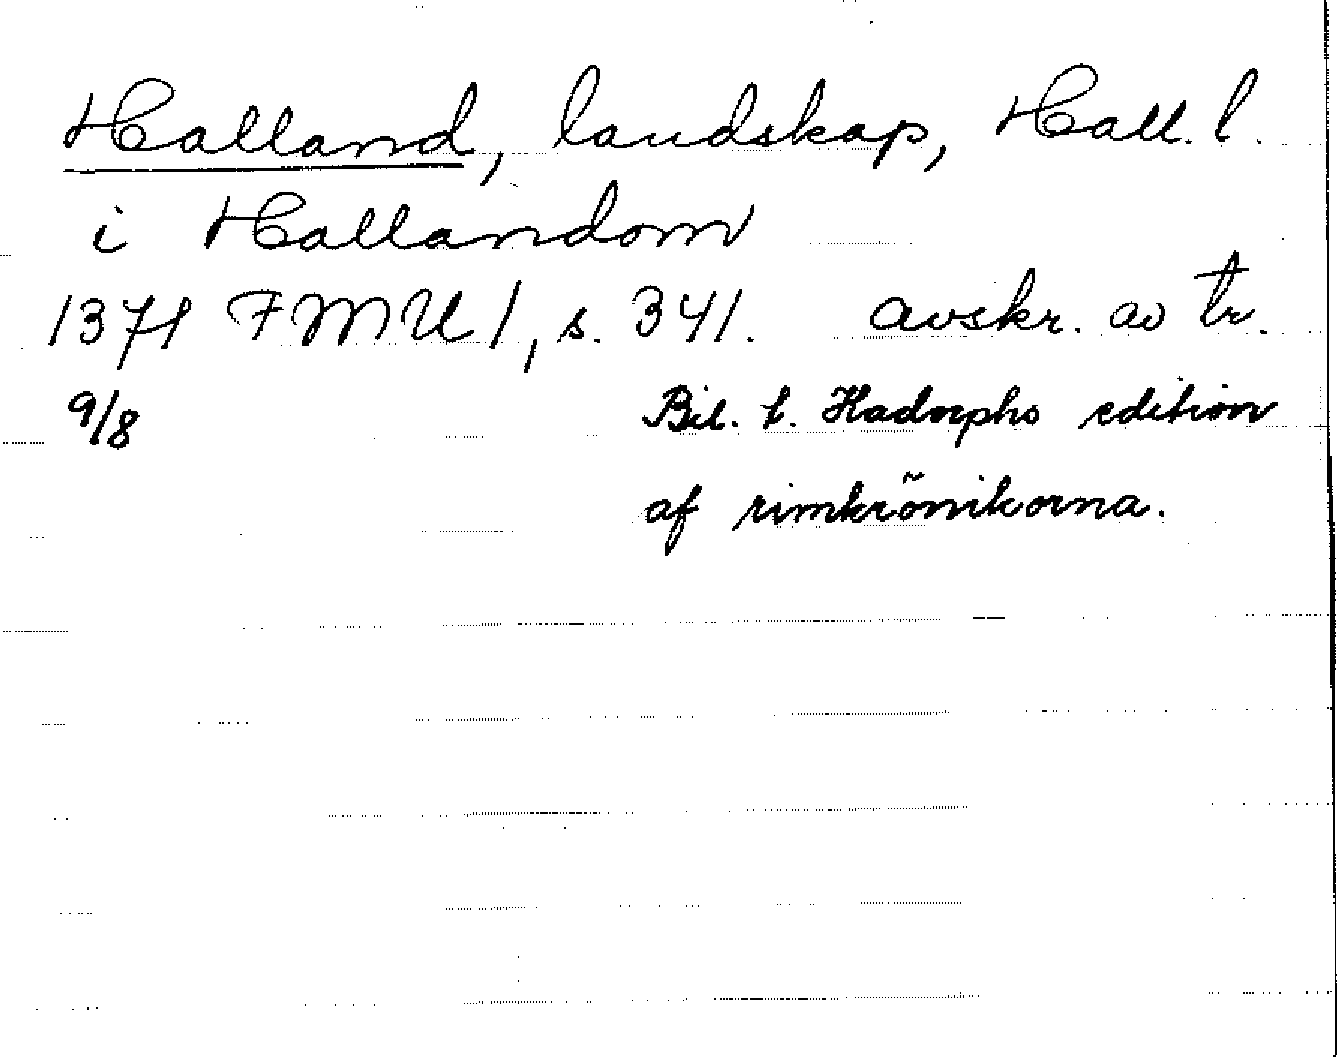 Halland, landskap, Hall. l.
i Hallandom
1371 FMU 1, s. 341. avskr. av tr.
9/8 Bil. t. Hadorphs edition
af rimkrönikorna.